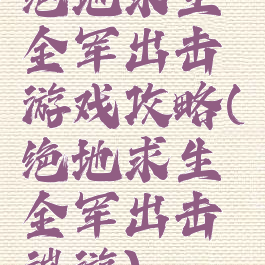 绝地求生
全军出击
游戏攻略(
绝地求生
全军出击
端游)